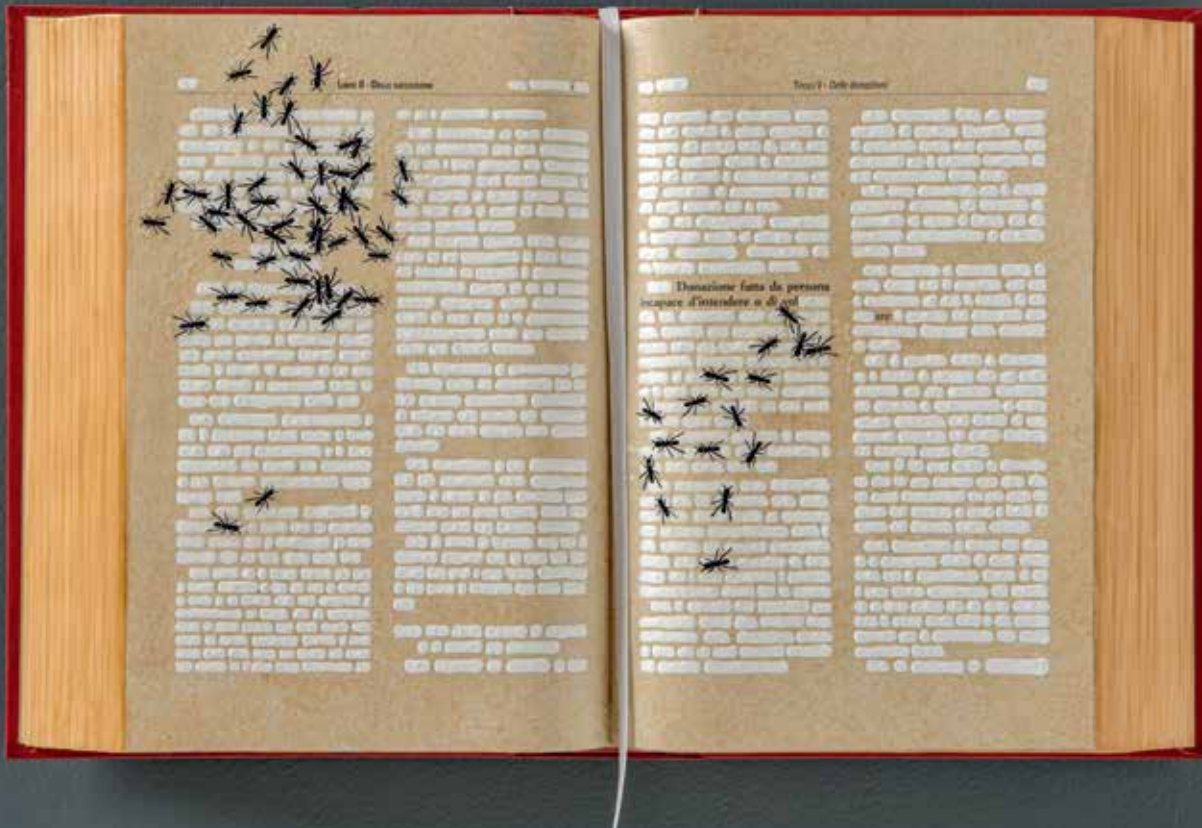 Libro II - Delle successioni
Titolo V - Delle donazioni
Donazione fatta da persona
incapace d'intendere o di vol